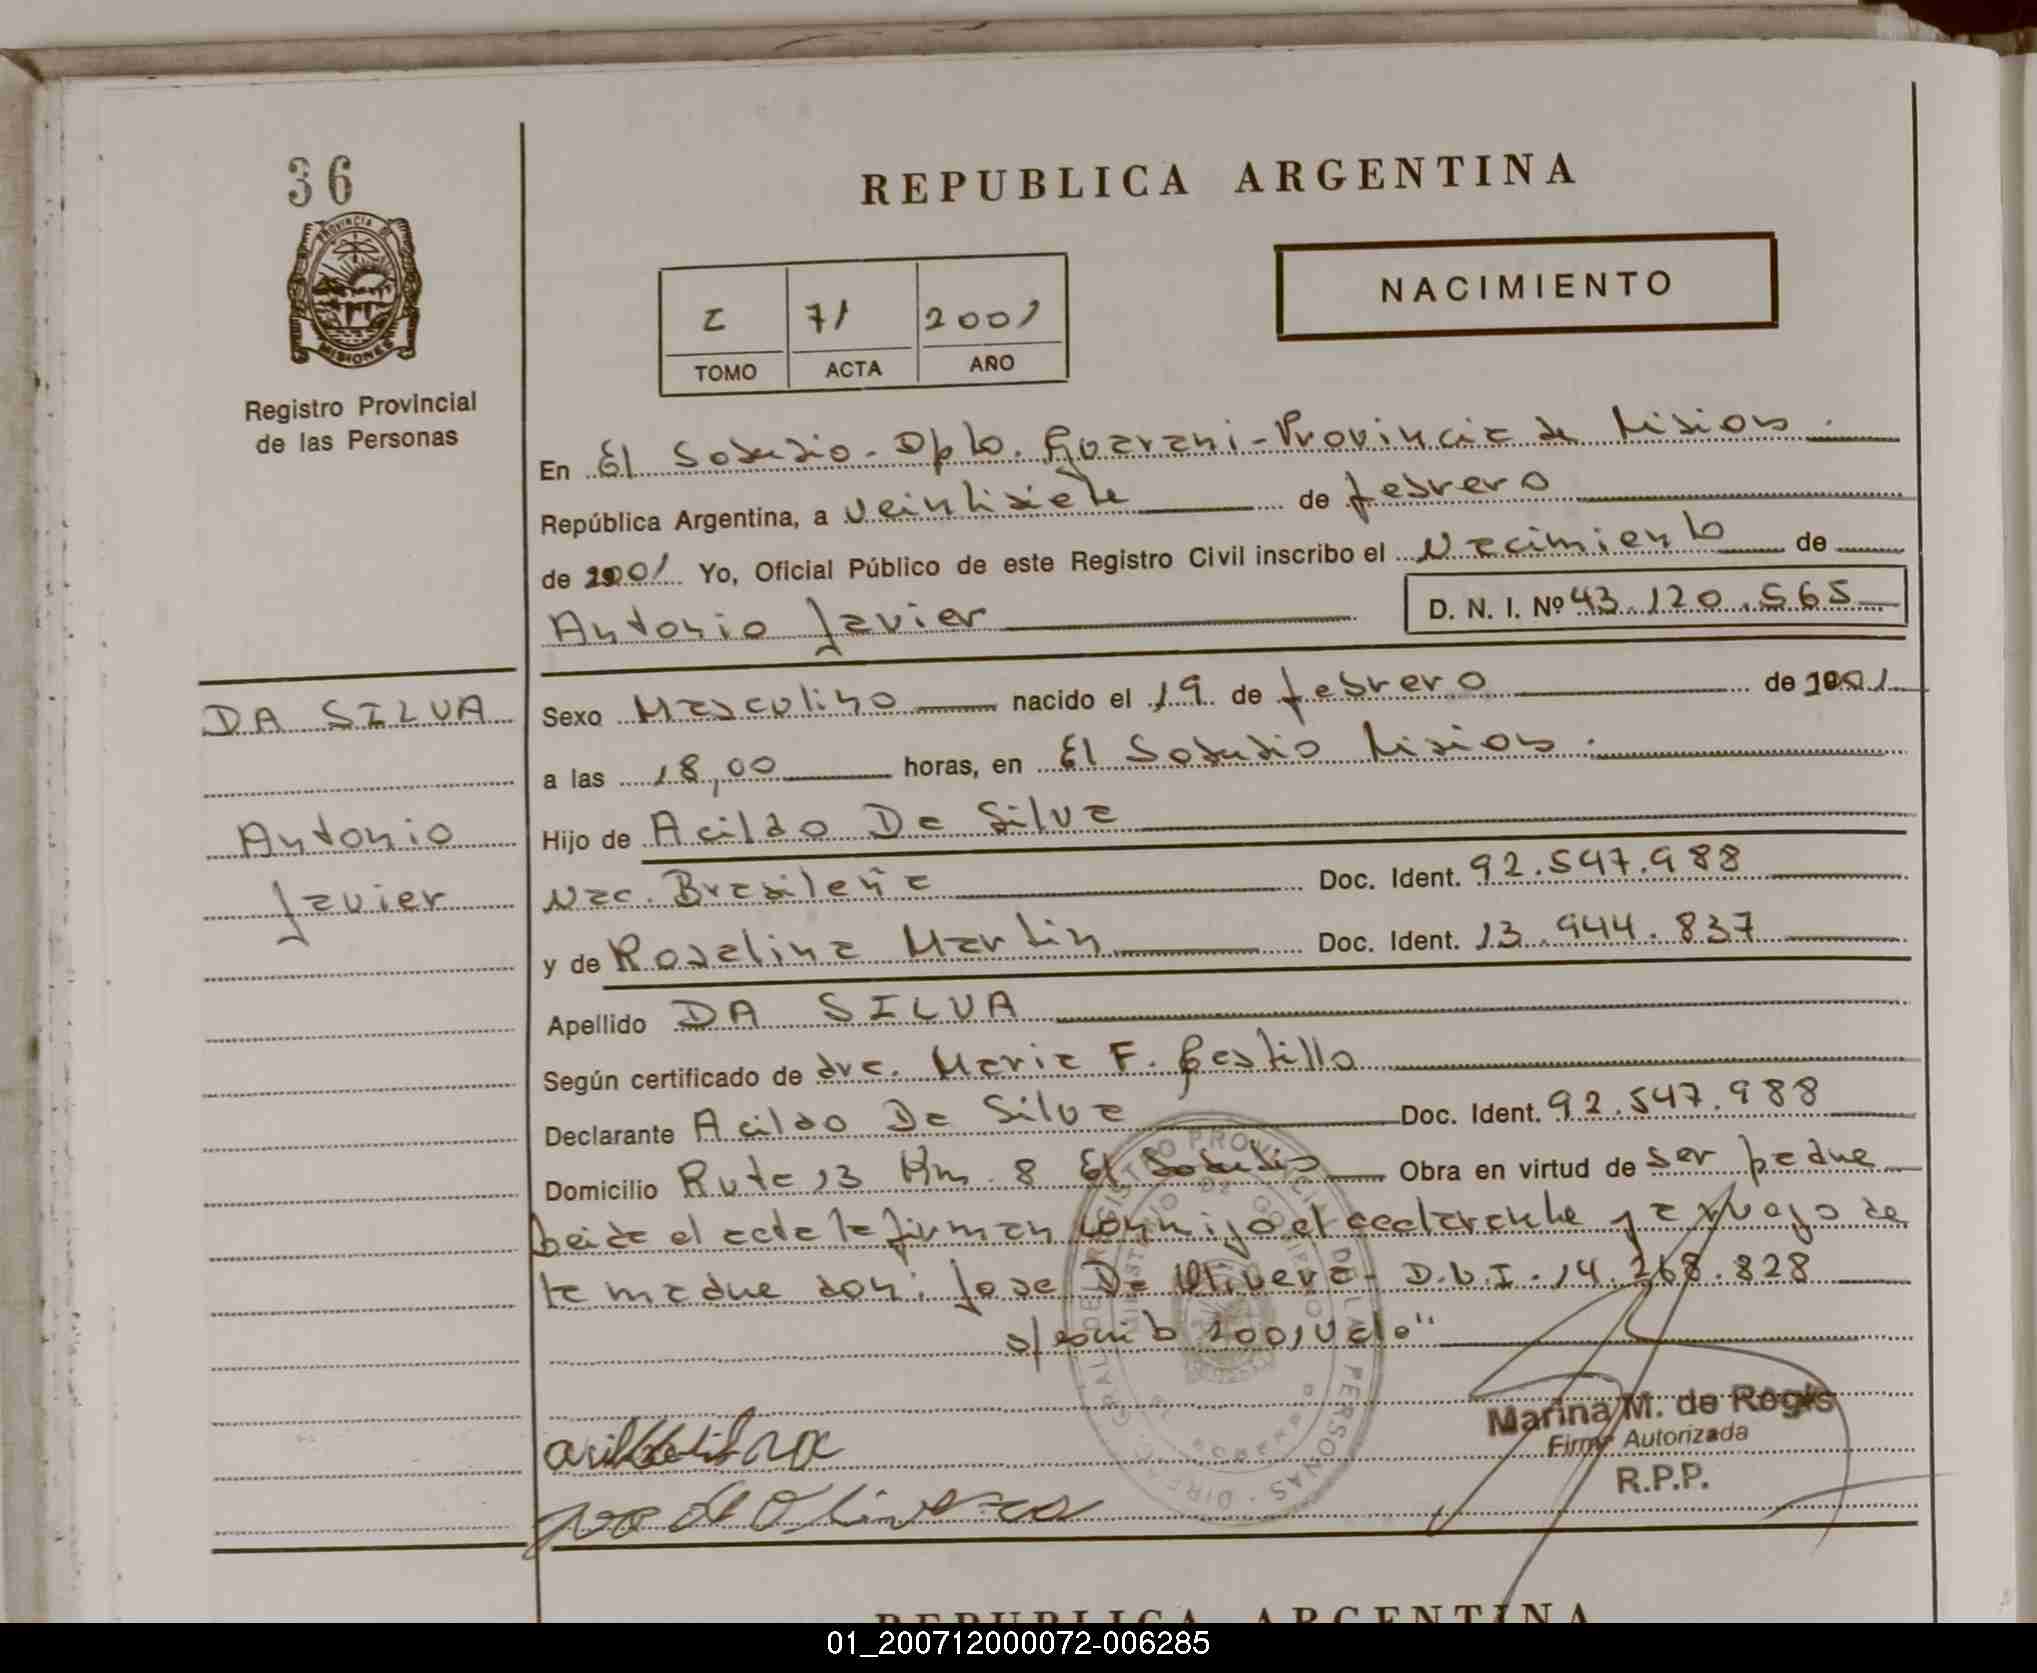 36
PROVINCIA DE
MISIONES
Registro Provincial
de las Personas
REPUBLICA ARGENTINA
NACIMIENTO
I 71 2001
TOMO ACTA AÑO
En El Soberbio - Dpto. Guarani - Provincia de Misiones.
República Argentina, a veintisiete de febrero
de 2001 Yo, Oficial Público de este Registro Civil inscribo el Nacimiento de
Antonio Javier D. N. I. Nº 43.120.565
DA SILVA
Antonio
Javier
Sexo Masculino nacido el 19 de febrero de 2001
a las 18,00 horas, en El Soberbio Misiones.
Hijo de Acildo Da Silva
Nac. Brasileña Doc. Ident. 92.547.988
y de Roselina Martin Doc. Ident. 13.944.837
Apellido DA SILVA
Según certificado de dra. Maria F. Castillo
Declarante Acildo Da Silva Doc. Ident. 92.547.988
Domicilio Ruta 13 Km 8 El Soberbio Obra en virtud de ser padre
Leida el acta la firman conmigo el declarante y a ruego de
la madre don: Jose De Olivera - D.N.I. 14.268.828
s/escrito 2001 Vale"
Marina M. de Regis
Firma Autorizada
R.P.P.
REPUBLICA ARGENTINA
01_200712000072-006285